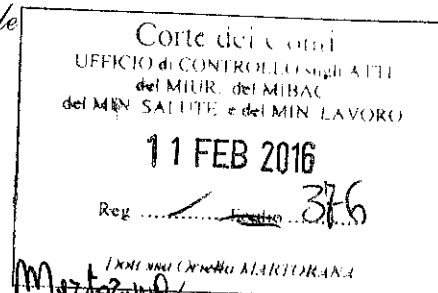 le
Corte dei Conti
UFFICIO di CONTROLLO sugli ATTI
del MIUR, del MIBAC
del MIN. SALUTE e del MIN. LAVORO
11 FEB 2016
Reg ......... Foglio ... 376
Dott.ssa Ornella MARTORANA
Martorana